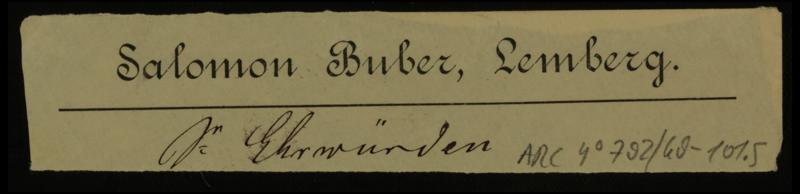 Salomon Buber, Lemberg.
Sr. Ehrwürden
ARC 4° 792/68-101.5